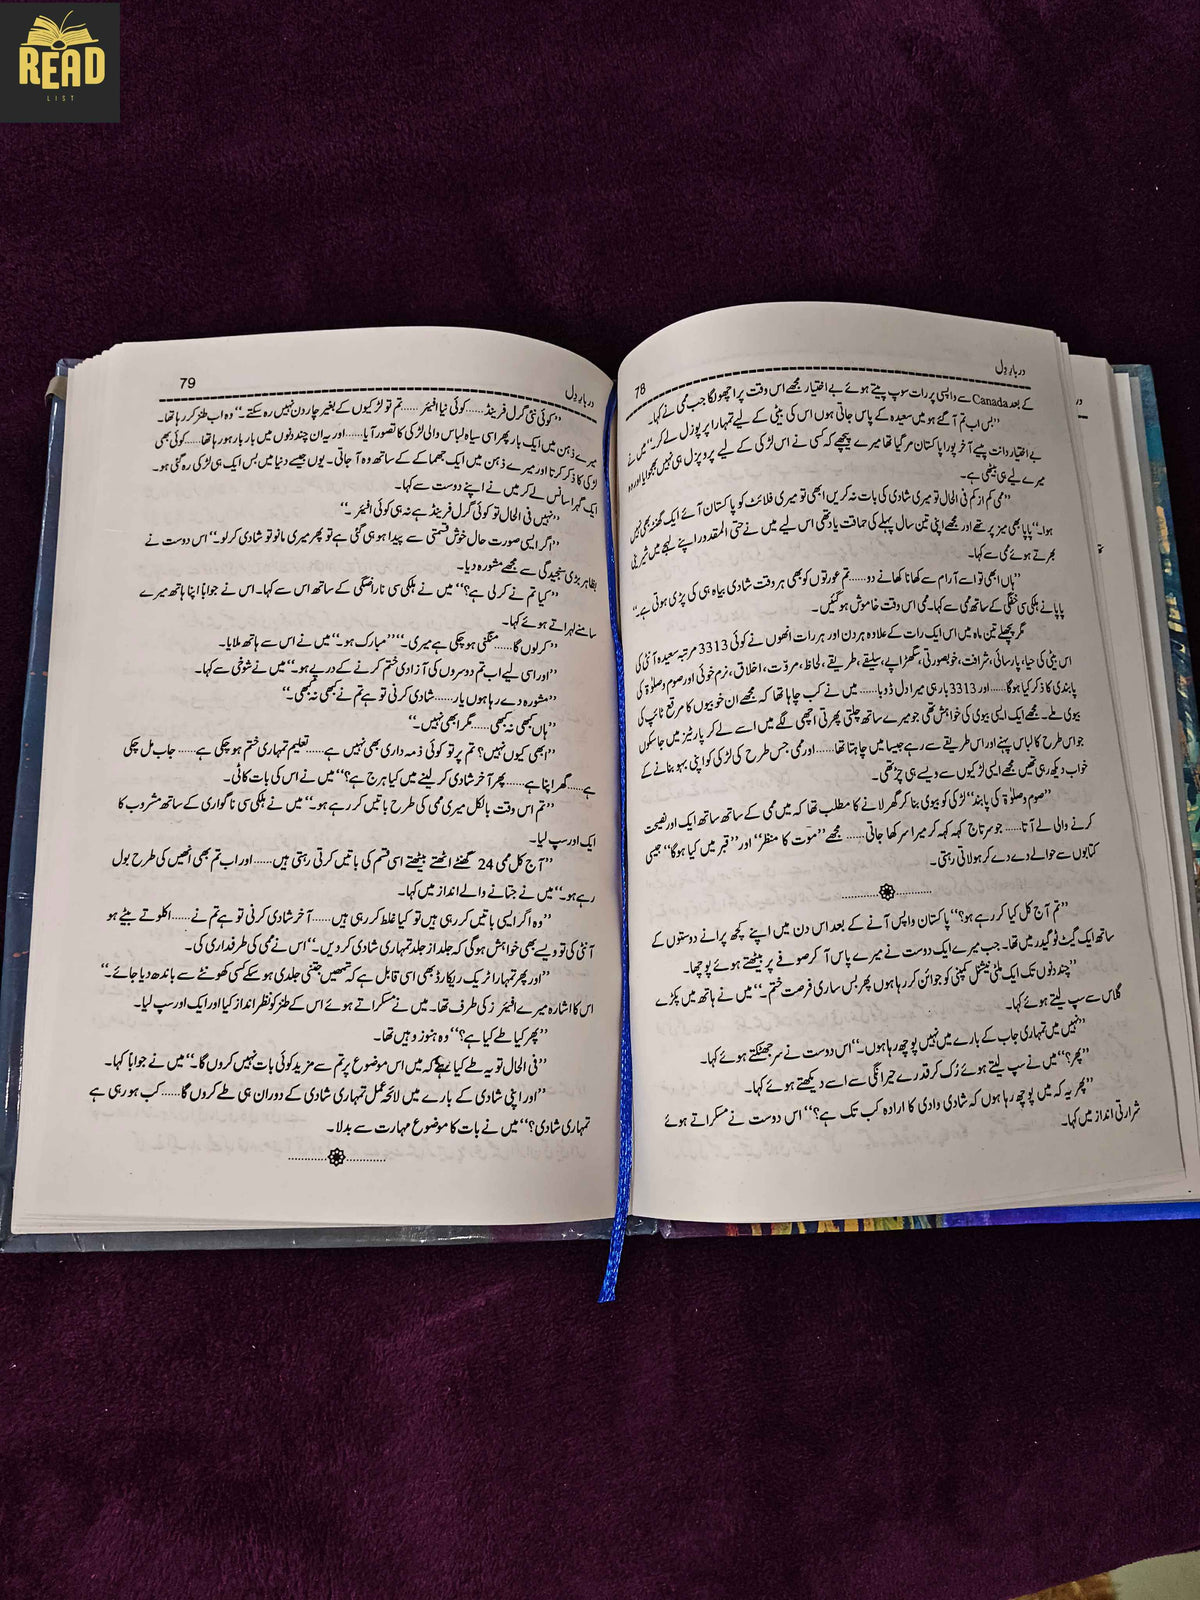 READ
LIST
دربارِ دل
78
کے بعد Canada سے واپسی پر رات سوپ پیتے ہوئے بے اختیار مجھے اس وقت پر اچھو لگا جب ممی نے کہا۔
”بس اب تم آ گئے ہو میں سعیدہ کے پاس جاتی ہوں اس کی بیٹی کے لیے تمہارا پرپوزل لے کر۔“ میں نے
بے اختیار دانت پیسے آخر پورا پاکستان مر گیا تھا میرے پیچھے کہ کسی نے اس لڑکی کے لیے پروپزل ہی نہیں بھجوایا اور وہ
میرے لیے ہی بیٹھی ہے۔
”ممی کم از کم فی الحال تو میری شادی کی بات نہ کریں ابھی تو میری فلائٹ کو پاکستان آئے ایک گھنٹہ بھی نہیں
ہوا۔“ پاپا بھی میز پر تھے اور مجھے اپنی تین سال پہلے کی حماقت یاد تھی اس لیے میں نے حتی المقدور اپنے لہجے میں شیرینی
بھرتے ہوئے ممی سے کہا۔
”ہاں ابھی تو اسے آرام سے کھانا کھانے دو......تم عورتوں کو بھی ہر وقت شادی بیاہ ہی کی پڑی ہوتی ہے۔“
پاپا نے ہلکی سی خفگی کے ساتھ ممی سے کہا۔ ممی اس وقت خاموش ہو گئیں۔
مگر پچھلے تین ماہ میں اس ایک رات کے علاوہ ہر دن اور ہر رات انھوں نے کوئی 3313 مرتبہ سعیدہ آنٹی کی
اس بیٹی کی حیا، پارسائی، شرافت، خوبصورتی، سگھڑاپے، سلیقے، طریقے، لحاظ، مروّت، اخلاق، نرم خوئی اور صوم و صلوٰۃ کی
پابندی کا ذکر کیا ہوگا......اور 3313 بار ہی میرا دل ڈوبا...... میں نے کب چاہا تھا کہ مجھے ان خوبیوں کا مرقع ٹائپ کی
بیوی ملے۔ مجھے ایک ایسی بیوی کی خواہش تھی جو میرے ساتھ چلتی پھرتی اچھی لگے میں اسے لے کر پارٹیز میں جا سکوں
جو اس طرح کا لباس پہنے اور اس طریقے سے رہے جیسا میں چاہتا تھا......اور ممی جس طرح کی لڑکی کو اپنی بہو بنانے کے
خواب دیکھ رہی تھیں مجھے ایسی لڑکیوں سے ویسے ہی چڑ تھی۔
”صوم و صلوٰۃ کی پابند“ لڑکی کو بیوی بنا کر گھر لانے کا مطلب تھا کہ میں ممی کے ساتھ ساتھ ایک اور نصیحت
کرنے والی لے آتا...... جو سرتاج کہہ کہہ کر میرا سر کھا جاتی...... مجھے ”موت کا منظر“ اور ”قبر میں کیا ہوگا“ جیسی
کتابوں سے حوالے دے دے کر ہولاتی رہتی۔
”تم آج کل کیا کر رہے ہو؟“ پاکستان واپس آنے کے بعد اس دن میں اپنے کچھ پرانے دوستوں کے
ساتھ ایک گیٹ ٹو گیدر میں تھا۔ جب میرے ایک دوست نے میرے پاس آ کر صوفے پر بیٹھتے ہوئے پوچھا۔
”چند دنوں تک ایک ملٹی نیشنل کمپنی کو جوائن کر رہا ہوں پھر بس ساری فرصت ختم۔“ میں نے ہاتھ میں پکڑے
گلاس سے سپ لیتے ہوئے کہا۔
”نہیں میں تمہاری جاب کے بارے میں نہیں پوچھ رہا ہوں۔“ اس دوست نے سر جھٹکتے ہوئے کہا۔
”پھر؟“ میں نے سپ لیتے ہوئے رُک کر قدرے حیرانگی سے اسے دیکھتے ہوئے کہا۔
”پھر یہ کہ میں پوچھ رہا ہوں کہ شادی وادی کا ارادہ کب تک ہے؟“ اس دوست نے مسکراتے ہوئے
شرارتی انداز میں کہا۔
دربارِ دل
79
”کوئی نئی گرل فرینڈ......کوئی نیا افیئر......تم تو لڑکیوں کے بغیر چار دن نہیں رہ سکتے۔“ وہ اب طنز کر رہا تھا۔
میرے ذہن میں ایک بار پھر اسی سیاہ لباس والی لڑکی کا تصور آیا......اور یہ ان چند دنوں میں بار بار ہو رہا تھا......کوئی بھی
لڑکی کا ذکر کرتا اور میرے ذہن میں ایک جھماکے کے ساتھ وہ آ جاتی۔ یوں جیسے دنیا میں بس ایک ہی لڑکی رہ گئی ہو۔
ایک گہرا سانس لے کر میں نے اپنے دوست سے کہا۔
”نہیں فی الحال تو کوئی گرل فرینڈ ہے نہ ہی کوئی افیئر۔“
”اگر ایسی صورت حال خوش قسمتی سے پیدا ہو ہی گئی ہے تو پھر میری مانو تو شادی کر لو۔“ اس دوست نے
بظاہر بڑی سنجیدگی سے مجھے مشورہ دیا۔
”کیا تم نے کر لی ہے؟“ میں نے ہلکی سی ناراضگی کے ساتھ اس سے کہا۔ اس نے جواباً اپنا ہاتھ میرے
سامنے لہراتے ہوئے کہا۔
”کر لوں گا......منگنی ہو چکی ہے میری۔“ ”مبارک ہو۔“ میں نے اس سے ہاتھ ملایا۔
”اور اسی لیے اب تم دوسروں کی آزادی ختم کرنے کے درپے ہو۔“ میں نے شوخی سے کہا۔
”مشورہ دے رہا ہوں یار......شادی کرنی تو ہے تم نے کبھی نہ کبھی۔“
”ہاں کبھی نہ کبھی......مگر ابھی نہیں۔“
”ابھی کیوں نہیں؟ تم پر تو کوئی ذمہ داری بھی نہیں ہے......تعلیم تمہاری ختم ہو چکی ہے......جاب مل چکی
ہے......گھر اپنا ہے......پھر آخر شادی کر لینے میں کیا ہرج ہے؟“ میں نے اس کی بات کاٹی۔
”تم اس وقت بالکل میری ممی کی طرح باتیں کر رہے ہو۔“ میں نے ہلکی سی ناگواری کے ساتھ مشروب کا
ایک اور سپ لیا۔
”آج کل ممی 24 گھنٹے اٹھتے بیٹھتے اسی قسم کی باتیں کرتی رہتی ہیں......اور اب تم بھی انھیں کی طرح بول
رہے ہو۔“ میں نے جتانے والے انداز میں کہا۔
”وہ اگر ایسی باتیں کر رہی ہیں تو کیا غلط کر رہی ہیں......آخر شادی کرنی تو ہے تم نے......اکلوتے بیٹے ہو
آنٹی کی تو ویسے بھی خواہش ہوگی کہ جلد از جلد تمہاری شادی کر دیں۔“ اس نے ممی کی طرفداری کی۔
”اور پھر تمہارا ٹریک ریکارڈ بھی اسی قابل ہے کہ تمھیں جتنی جلدی ہو سکے کسی کھونٹے سے باندھ دیا جائے۔“
اس کا اشارہ میرے افیئرز کی طرف تھا۔ میں نے مسکراتے ہوئے اس کے طنز کو نظر انداز کیا اور ایک اور سپ لیا۔
”پھر کیا طے کیا ہے؟“ وہ ہنوز وہیں تھا۔
”فی الحال تو یہ طے کیا ہے کہ میں اس موضوع پر تم سے مزید کوئی بات نہیں کروں گا۔“ میں نے جواباً کہا۔
”اور اپنی شادی کے بارے میں لائحہ عمل تمہاری شادی کے دوران ہی طے کروں گا......کب ہو رہی ہے
تمہاری شادی؟“ میں نے بات کا موضوع مہارت سے بدلا۔